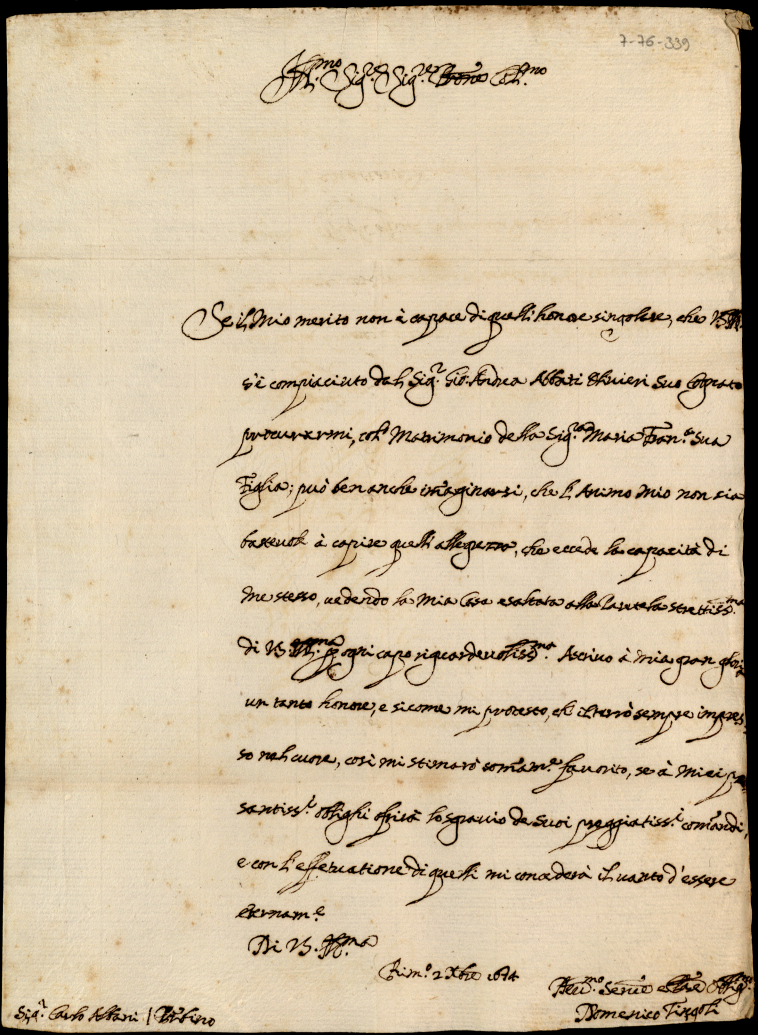 7-76-339
Ill.mo Sig.r e Sig.r P'rone Col.mo
Se il Mio merito non è capace di quell'honore singolare, che V.S. Ill.
s'è compiaciuto dal Sig.r Gio: Andrea Abbati Olivieri suo Cognato
procurarmi, col Matrimonio della Sig.ra Maria Fran.a Sua
Figlia; può ben anche im'aginarsi, che l'Animo Mio non sia
bastevole à capire quell'allegrezza, che eccede la capacità di
me stesso, vedendo la Mia Casa esaltata alla Parentela strettiss.ma
di V.S. Ill.ma p ogni capo riguardevoliss.ma. Ascrivo à Mia gran gloria
un tanto honore, e sicome mi protesto, che il terrò sempre impres-
so nel cuore, così mi stimarò som'am.e favorito, se à Miei pe
santiss.i oblighi ofrirà lo sgravio de suoi preggiatiss.i com'andi,
e con l'effetuatione di quelli mi concederà il vanto d'essere
eternam.e
Di V.S. Ill.ma
Rim.o 2 Xbre 1674
Dev.mo Serv.e Oblig.mo
Domenico Tingoli
Sig.r Carlo Albani / Urbino